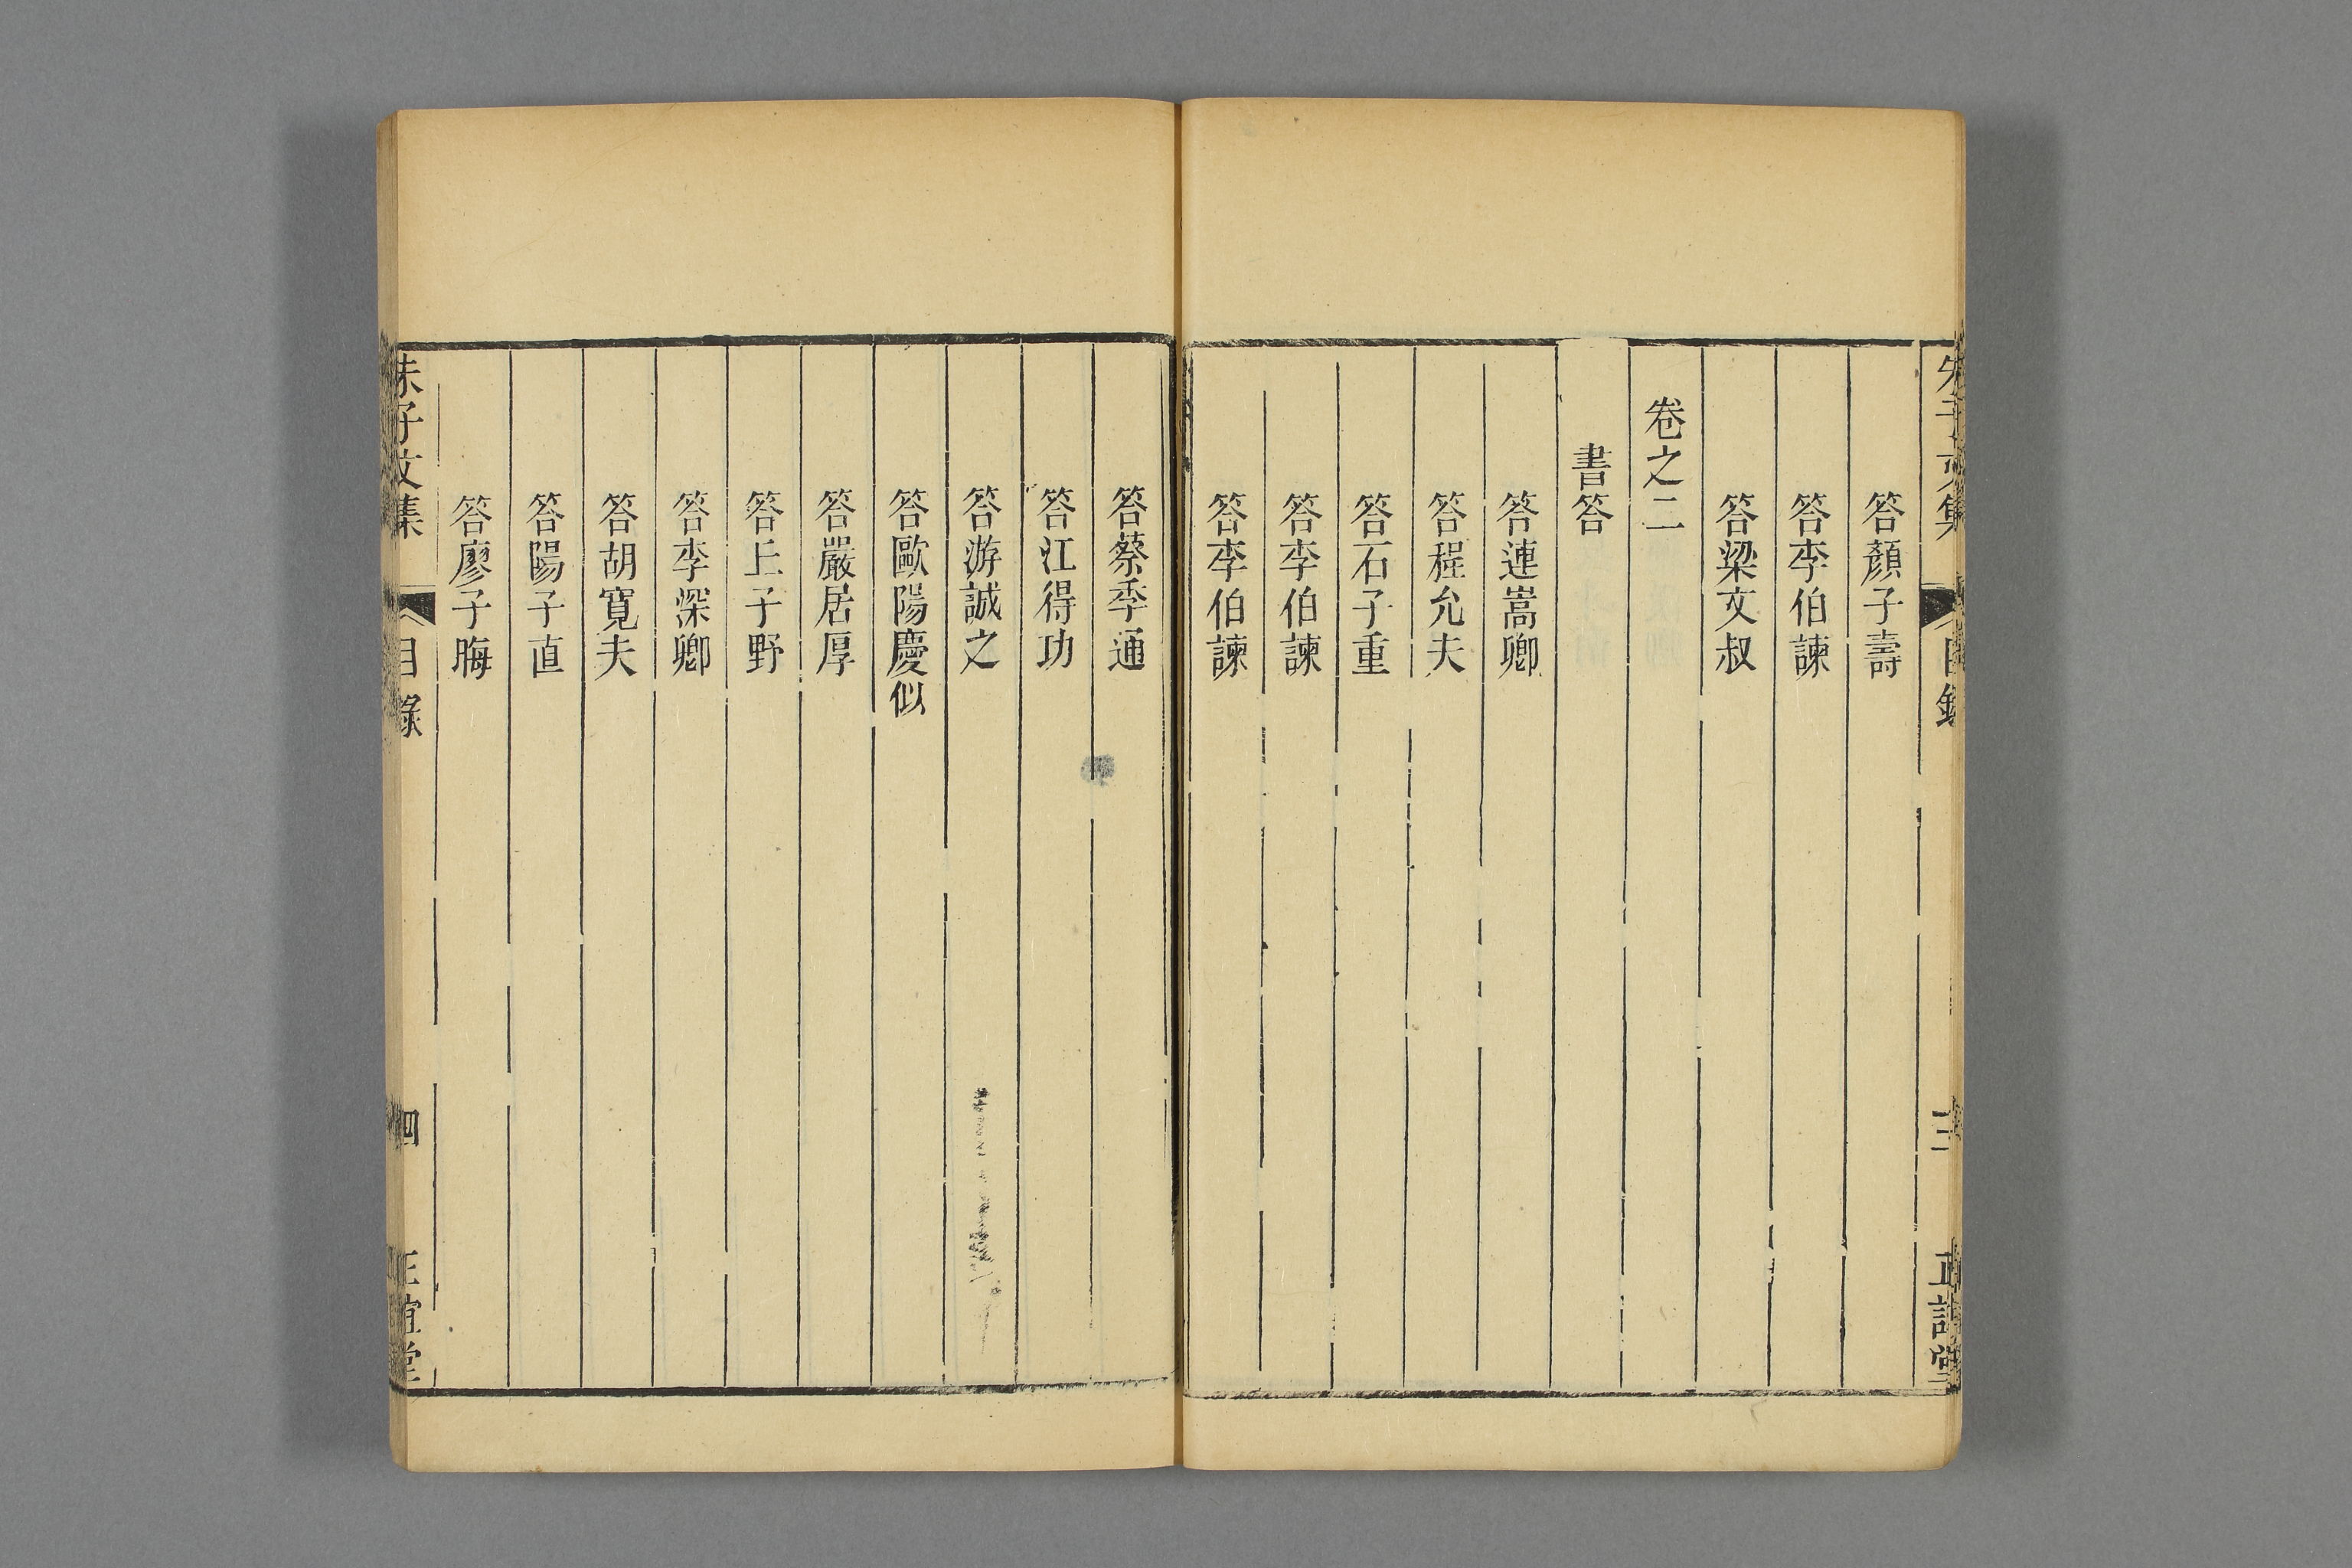 朱子文集 目錄 三 正誼堂
答顏子壽
答李伯諫
答梁文叔
卷之二
書答
答連嵩卿
答程允夫
答石子重
答李伯諫
答李伯諫
答蔡季通
答江得功
答游誠之
答歐陽慶似
答嚴居厚
答丘子野
答李深卿
答胡寬夫
答陽子直
答廖子晦
朱子文集 目錄 四 正誼堂